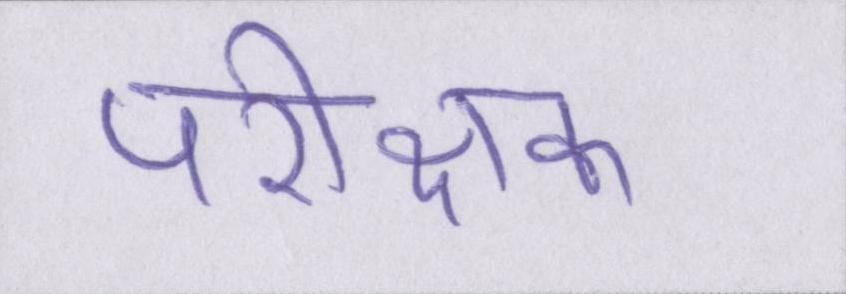 परीक्षक